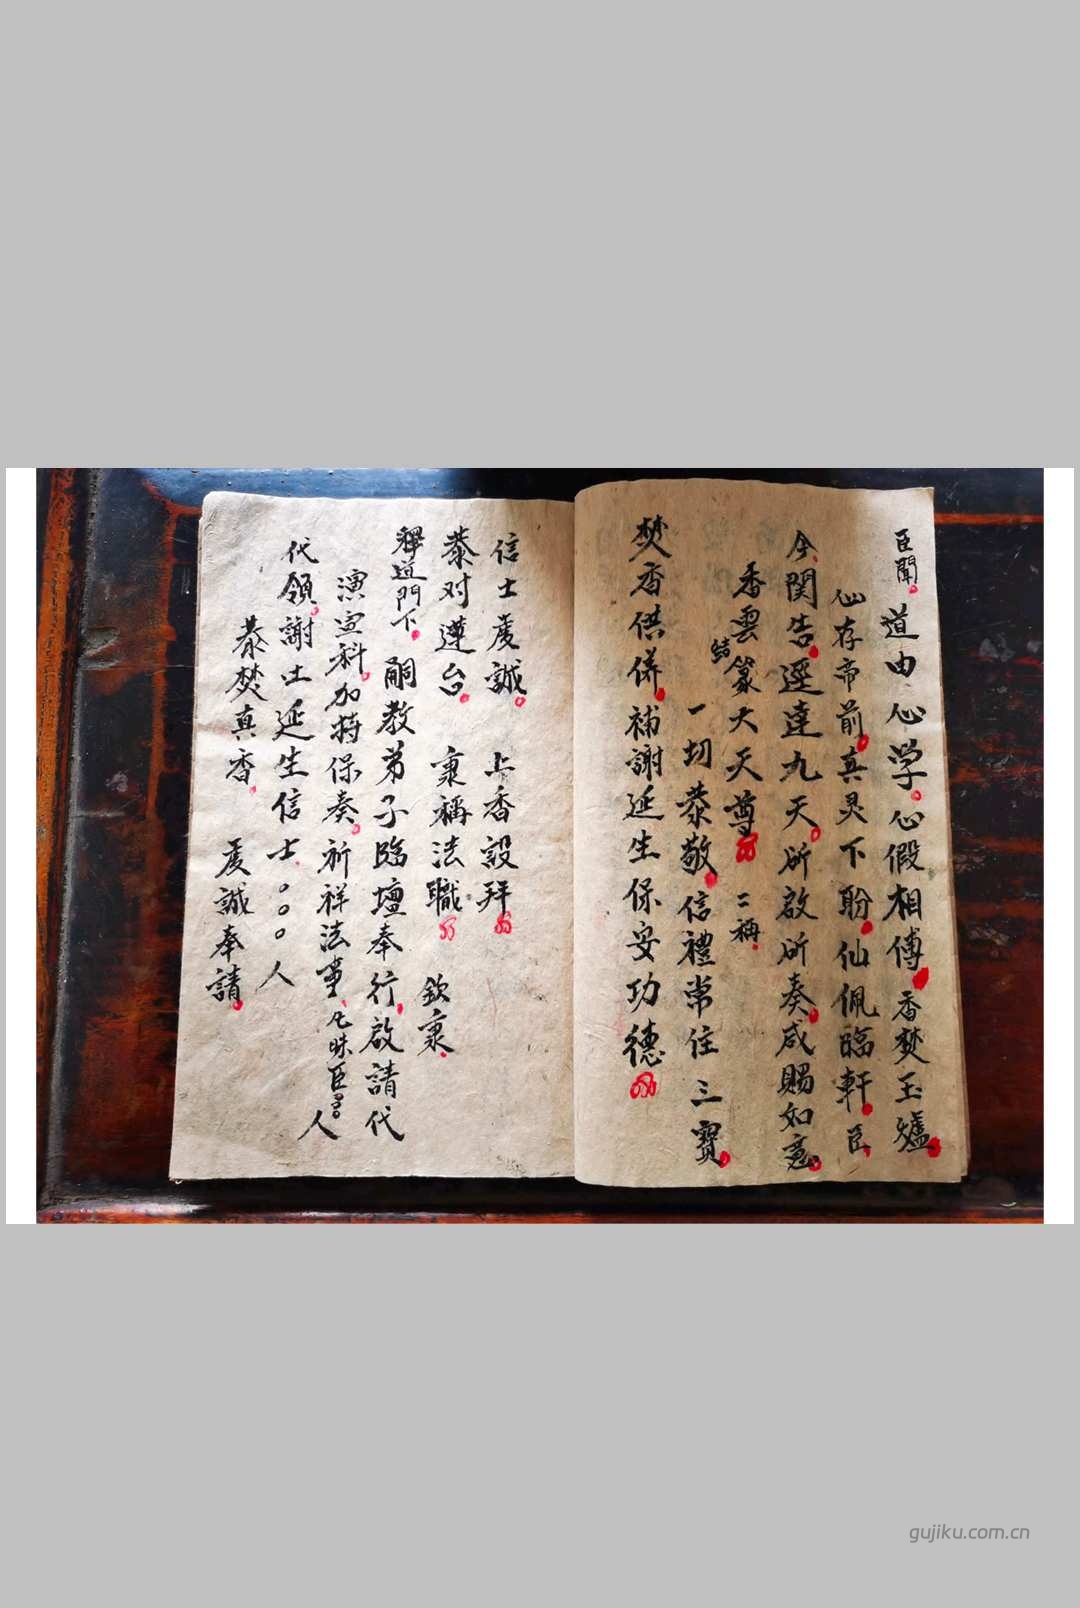 臣聞道由心学心假相傅香焚玉爐
仙存帝前真灵下盼仙佩臨軒臣
今関告逕達九天所啟所奏咸賜如意
香雲結篆大天尊二称
一切恭敬信禮常住三寶
焚香供併補謝延生保安功德
信士虔誠上香設拜
恭对蓮台稟稱法職欽稟
釋道門下嗣教弟子臨壇奉行啟請代
演宣科加持保奏祈祥法事凡昧臣〇〇人
代領謝土延生信士〇〇〇人
恭焚真香虔誠奉請
gujiku.com.cn